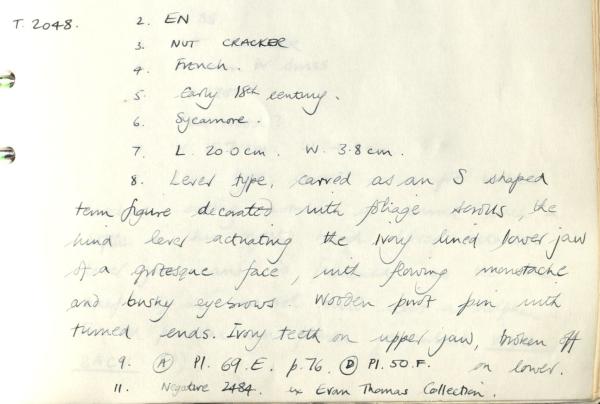 T. 2048.
2. EN
3. NUT CRACKER
4. French.
5. Early 18th century.
6. Sycamore.
7. L. 20.0 cm. W. 3.8 cm.
8. Lever type, carved as an S shaped
term figure decorated with foliage scrolls, the
hind lever activating the ivory lined lower jaw
of a grotesque face, with flowing moustache
and bushy eyebrows. Wooden pivot pin with
turned ends. Ivory teeth on upper jaw, broken off
on lower.
9. (A) Pl. 69.E. p.76. (D) Pl. 50.F.
11. Negative 2484. ex Evan Thomas Collection.